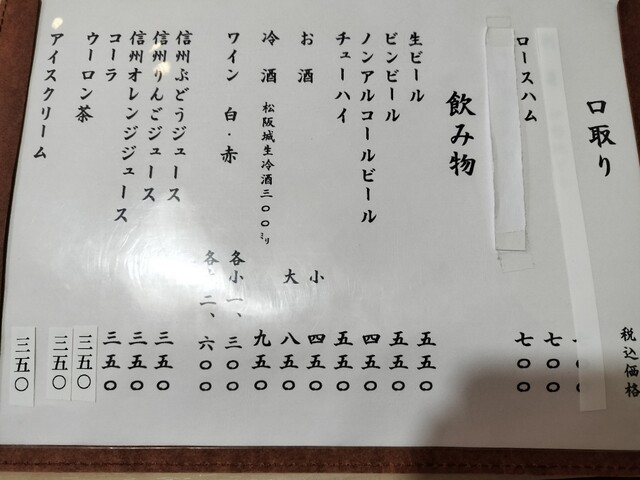 税込価格
口取り
七〇〇
ロースハム 七〇〇
飲み物
生ビール 五五〇
ビンビール 五五〇
ノンアルコールビール 四五〇
チューハイ 五五〇
お酒 小 四五〇
大 八五〇
冷酒 松阪城生冷酒三〇〇ミリ 九五〇
ワイン 白・赤 各小一、三〇〇
各 二、六〇〇
信州ぶどうジュース 三五〇
信州りんごジュース 三五〇
信州オレンジジュース 三五〇
コーラ 三五〇
ウーロン茶 三五〇
アイスクリーム 三五〇